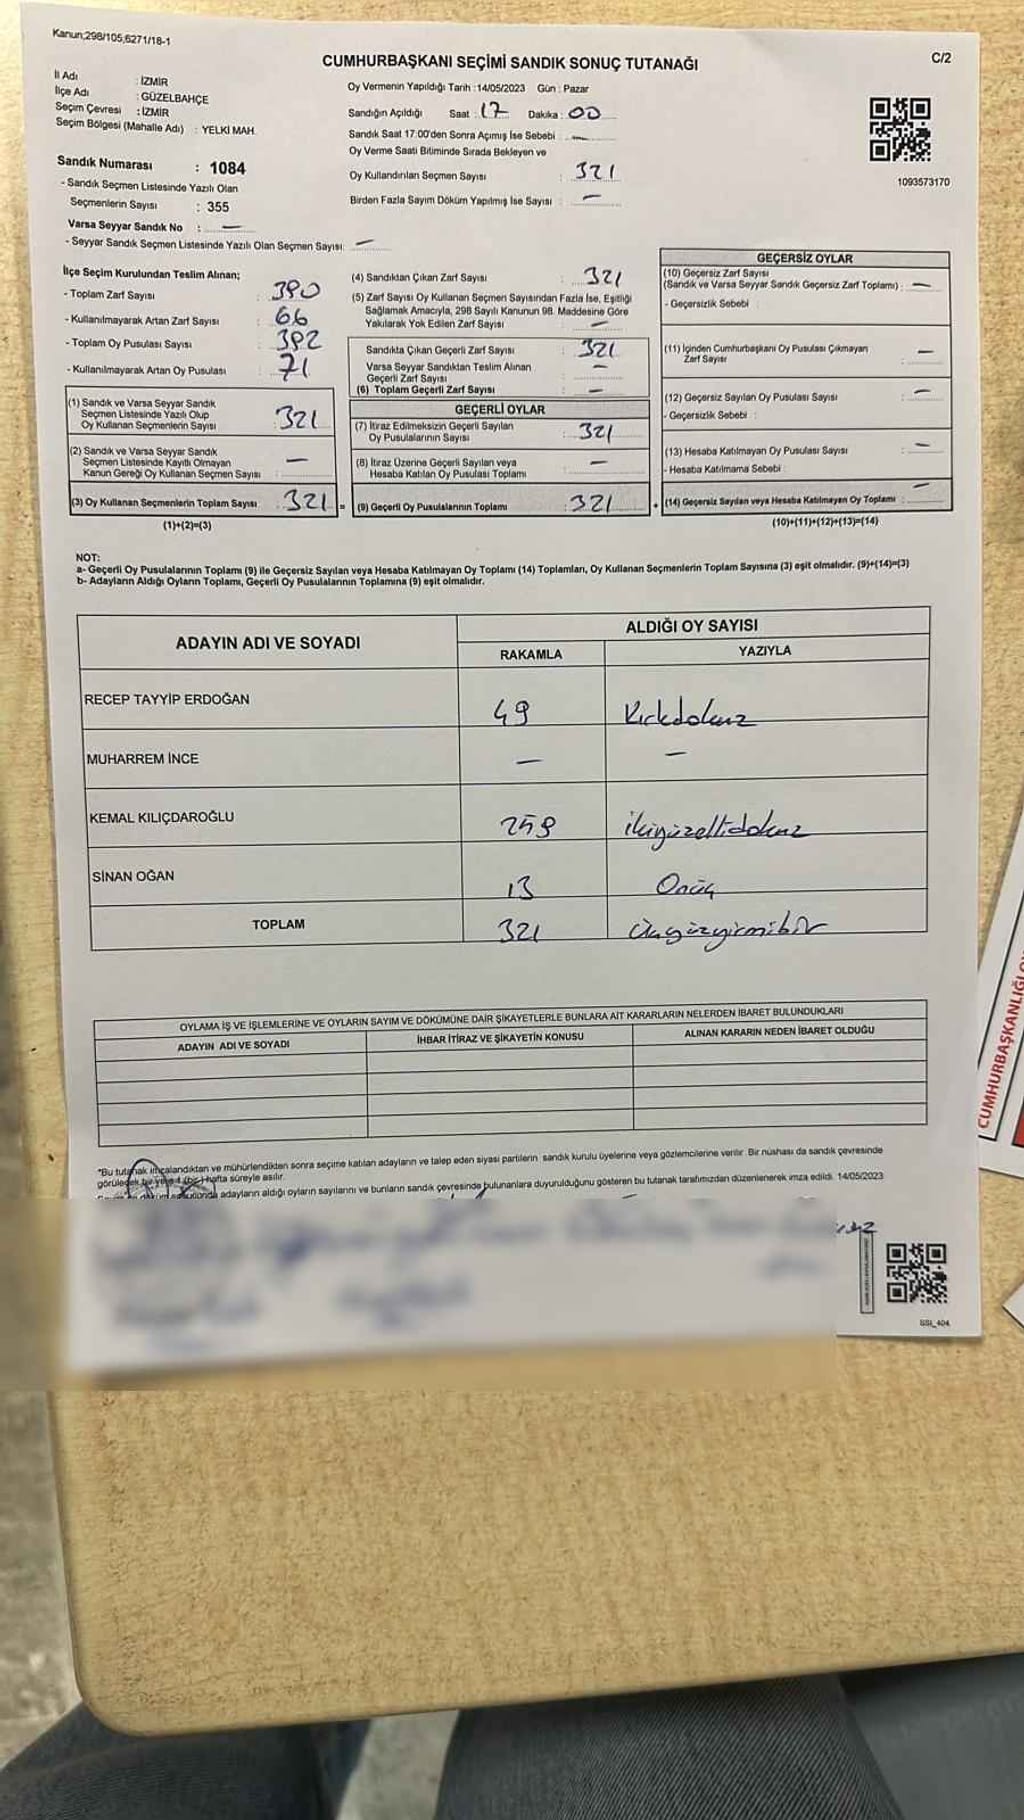 Kanun;298/105,6271/18-1
CUMHURBAŞKANI SEÇİMİ SANDIK SONUÇ TUTANAĞI
C/2
İl Adı : İZMİR
İlçe Adı : GÜZELBAHÇE
Seçim Çevresi : İZMİR
Seçim Bölgesi (Mahalle Adı) : YELKİ MAH.
Sandık Numarası : 1084
- Sandık Seçmen Listesinde Yazılı Olan
Seçmenlerin Sayısı : 355
Varsa Seyyar Sandık No : —
- Seyyar Sandık Seçmen Listesinde Yazılı Olan Seçmen Sayısı: —
Oy Vermenin Yapıldığı Tarih :14/05/2023 Gün : Pazar
Sandığın Açıldığı Saat : 17 Dakika : 00
Sandık Saat 17:00'den Sonra Açımış İse Sebebi : —
Oy Verme Saati Bitiminde Sırada Bekleyen ve
Oy Kullandırılan Seçmen Sayısı : 321
Birden Fazla Sayım Döküm Yapılmış İse Sayısı : —
1093573170
İlçe Seçim Kurulundan Teslim Alınan;
- Toplam Zarf Sayısı : 390
- Kullanılmayarak Artan Zarf Sayısı : 66
- Toplam Oy Pusulası Sayısı : 392
- Kullanılmayarak Artan Oy Pusulası : 71
(1) Sandık ve Varsa Seyyar Sandık
Seçmen Listesinde Yazılı Olup
Oy Kullanan Seçmenlerin Sayısı : 321
(2) Sandık ve Varsa Seyyar Sandık
Seçmen Listesinde Kayıtlı Olmayan
Kanun Gereği Oy Kullanan Seçmen Sayısı : —
(3) Oy Kullanan Seçmenlerin Toplam Sayısı : 321 =
(1)+(2)=(3)
(4) Sandıktan Çıkan Zarf Sayısı : 321
(5) Zarf Sayısı Oy Kullanan Seçmen Sayısından Fazla İse, Eşitliği
Sağlamak Amacıyla, 298 Sayılı Kanunun 98. Maddesine Göre
Yakılarak Yok Edilen Zarf Sayısı : —
Sandıkta Çıkan Geçerli Zarf Sayısı : 321
Varsa Seyyar Sandıktan Teslim Alınan
Geçerli Zarf Sayısı : —
(6) Toplam Geçerli Zarf Sayısı : —
GEÇERLİ OYLAR
(7) İtiraz Edilmeksizin Geçerli Sayılan
Oy Pusulalarının Sayısı : 321
(8) İtiraz Üzerine Geçerli Sayılan veya
Hesaba Katılan Oy Pusulası Toplamı : —
(9) Geçerli Oy Pusulalarının Toplamı : 321 +
GEÇERSİZ OYLAR
(10) Geçersiz Zarf Sayısı
(Sandık ve Varsa Seyyar Sandık Geçersiz Zarf Toplamı) : —
- Geçersizlik Sebebi :
(11) İçinden Cumhurbaşkanı Oy Pusulası Çıkmayan
Zarf Sayısı : —
(12) Geçersiz Sayılan Oy Pusulası Sayısı : —
- Geçersizlik Sebebi :
(13) Hesaba Katılmayan Oy Pusulası Sayısı : —
- Hesaba Katılmama Sebebi :
(14) Geçersiz Sayılan veya Hesaba Katılmayan Oy Toplamı : —
(10)+(11)+(12)+(13)=(14)
NOT:
a- Geçerli Oy Pusulalarının Toplamı (9) ile Geçersiz Sayılan veya Hesaba Katılmayan Oy Toplamı (14) Toplamları, Oy Kullanan Seçmenlerin Toplam Sayısına (3) eşit olmalıdır. (9)+(14)=(3)
b- Adayların Aldığı Oyların Toplamı, Geçerli Oy Pusulalarının Toplamına (9) eşit olmalıdır.
ADAYIN ADI VE SOYADI ALDIĞI OY SAYISI
RAKAMLA YAZIYLA
RECEP TAYYİP ERDOĞAN 49 Kırkdokuz
MUHARREM İNCE — —
KEMAL KILIÇDAROĞLU 259 ikiyüzellidokuz
SİNAN OĞAN 13 Onüç
TOPLAM 321 üçyüzyirmibir
OYLAMA İŞ VE İŞLEMLERİNE VE OYLARIN SAYIM VE DÖKÜMÜNE DAİR ŞİKAYETLERLE BUNLARA AİT KARARLARIN NELERDEN İBARET BULUNDUKLARI
ADAYIN ADI VE SOYADI İHBAR İTİRAZ VE ŞİKAYETİN KONUSU ALINAN KARARIN NEDEN İBARET OLDUĞU
*Bu tutanak imzalandıktan ve mühürlendikten sonra seçime katılan adayların ve talep eden siyasi partilerin sandık kurulu üyelerine veya gözlemcilerine verilir. Bir nüshası da sandık çevresinde
görülecek bir yere 1 (bir) hafta süreyle asılır.
adayların aldığı oyların sayılarını ve bunların sandık çevresinde bulunanlara duyurulduğunu gösteren bu tutanak tarafımızdan düzenlenerek imza edildi. 14/05/2023
SSI_404
CUMHURBAŞKANLIĞI